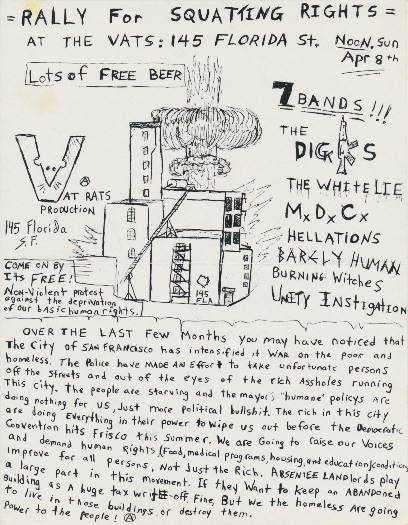 = RALLY For SQUATTING RIGHTS =
AT THE VATS: 145 FLORIDA St. NOON, Sun
Apr 8th
Lots of FREE BEER
7 BANDS !!!
THE
DICKS
THE WHITE LIE
MxDxCx
HELLATIONS
BARELY HUMAN
BURNING Witches
UNITY INSTIGATION
V
AT RATS
PRODUCTION
145 Florida
S.F.
COME ON BY
Its FREE!
Non-Violent protest
against the deprivation
of our basic human rights.
145
FLA
OVER THE LAST Few Months you may have noticed that
The City of SAN FRANCISCO has intensified it WAR on the poor and
homeless. The Police have MADE AN EFFORT to take unfortunate persons
off the Streets and out of the eyes of the rich Assholes running
This city. The people are starving and the mayor's "humane" policys are
doing nothing for US, Just more political bullshit. The rich in this city
are doing Everything in their power to wipe us out before the Democratic
Convention hits Frisco this Summer. We are Going to raise our Voices
and demand human Rights (Food, medical programs, housing, and education/conditions
improve for all persons, Not Just the Rich. ABSENTEE LANDlords play
a large part in this movement. If they Want to keep an ABANDONED
Building as A huge tax write-off Fine, But we the homeless are going
to live in those buildings or destroy them.
Power to the people!